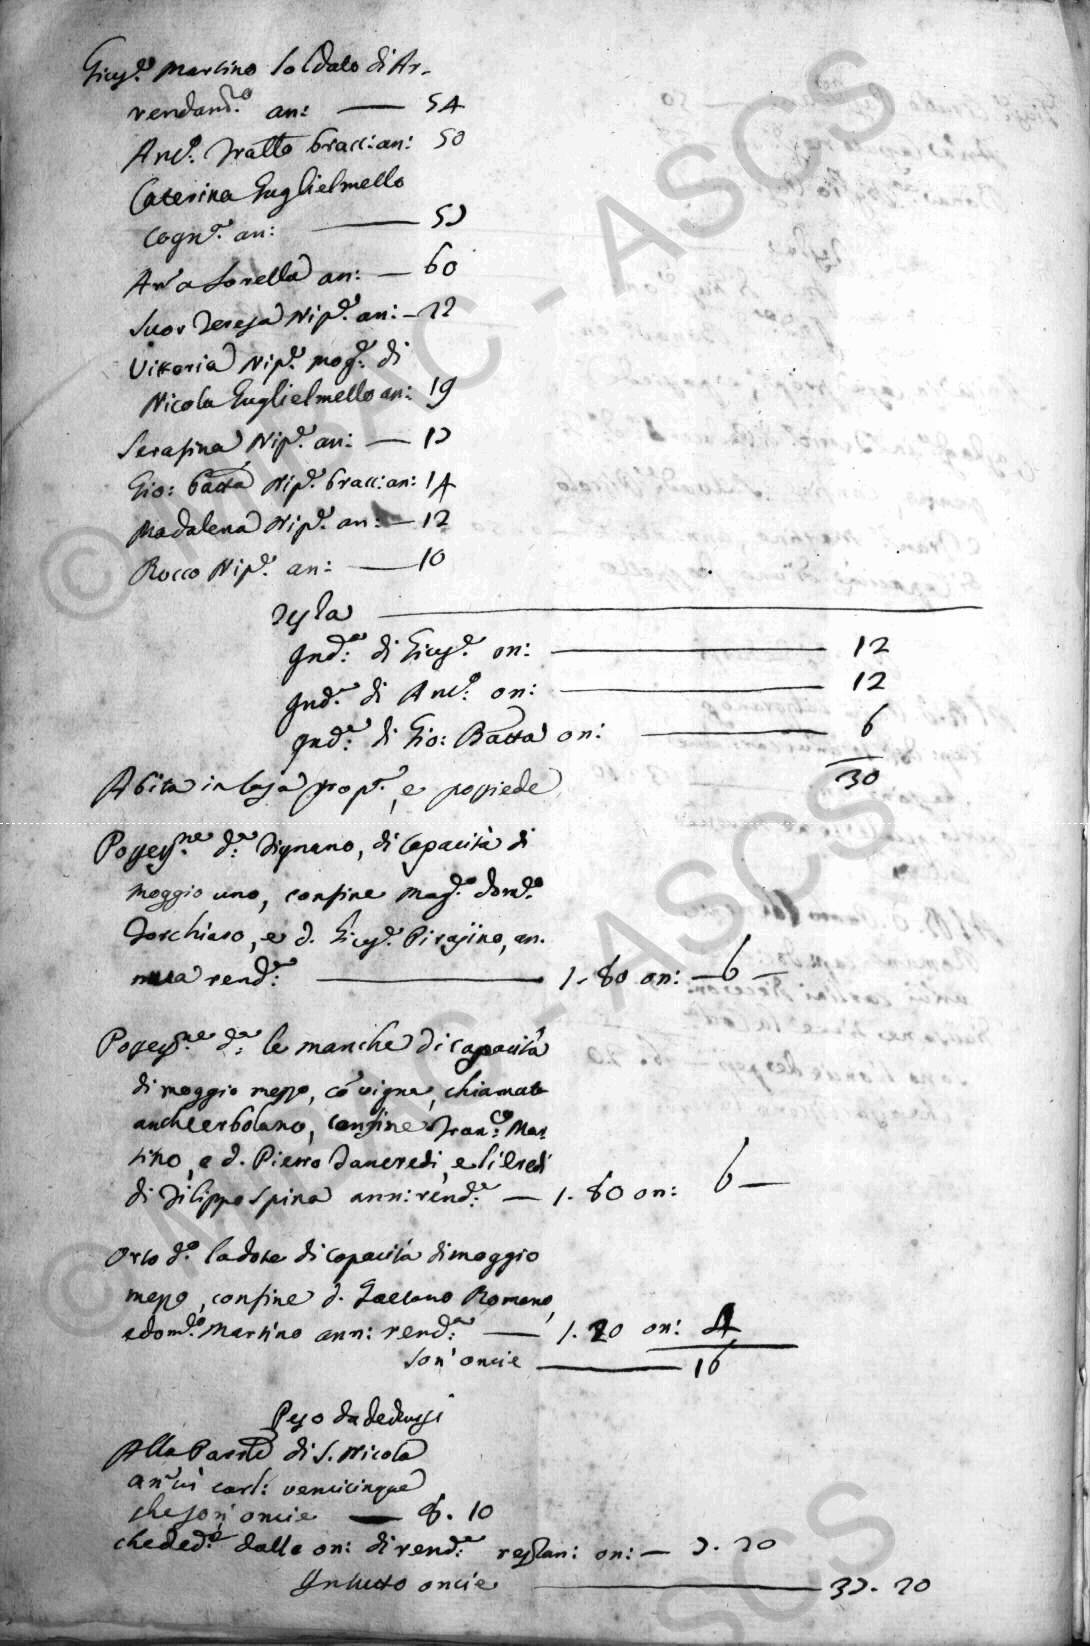 Gius.e Martino Soldato di Ar-
rendam.to an: — 54
Ant.o Fratto bracc: an: 50
Caterina Guglielmello
Cogn.a an: — 53
Anna Sorella an: — 60
Suor Teresa Nip.e an: — 22
Vittoria Nip.e mog.e di
Nicola Guglielmello an: 19
Serafina Nip.e an: — 13
Gio: Batta Nip.e bracc: an: 14
Madalena Nip.e an: — 12
Rocco Nip.e an: — 10
Testa —
Ind.a di Gius.e on: — 12
Ind.a di Ant.o on: — 12
Ind.a di Gio: Batta on: — 6
30
Abita in Casa prop.a, e possiede
Possess.ne d.a Dignano, di capacità di
moggio uno, confine Mag.o Dom.o
Torchiaro, e d. Gius.e Pirajino, an-
nua rend.a — 1-80 on: — 6 —
Possess.ne d.a le manche di capacità
di moggio mezzo, có vigna, chiamata
anche erbolano, confine Fran.co Mar-
tino, e d. Pietro Tancredi, e li eredi
di Filippo Spina ann: rend.a — 1-80 on: 6 —
Orto d.o la dote di capacità di moggio
mezzo, confine d. Gaetano Romano,
e Dom.o Martino ann: rend.a — 1.20 on: 4
Son' oncie — 16
Peso da dedursi
Alla Parr.le di S. Nicola
an'ui carl: venticinque
che son' oncie — 8. 10
che ded.e dalle on: di rend.a restan: on: — 3. 20
In tutto oncie — 33. 20
© MIBAC - ASCS
© MIBAC - ASCS
SCS